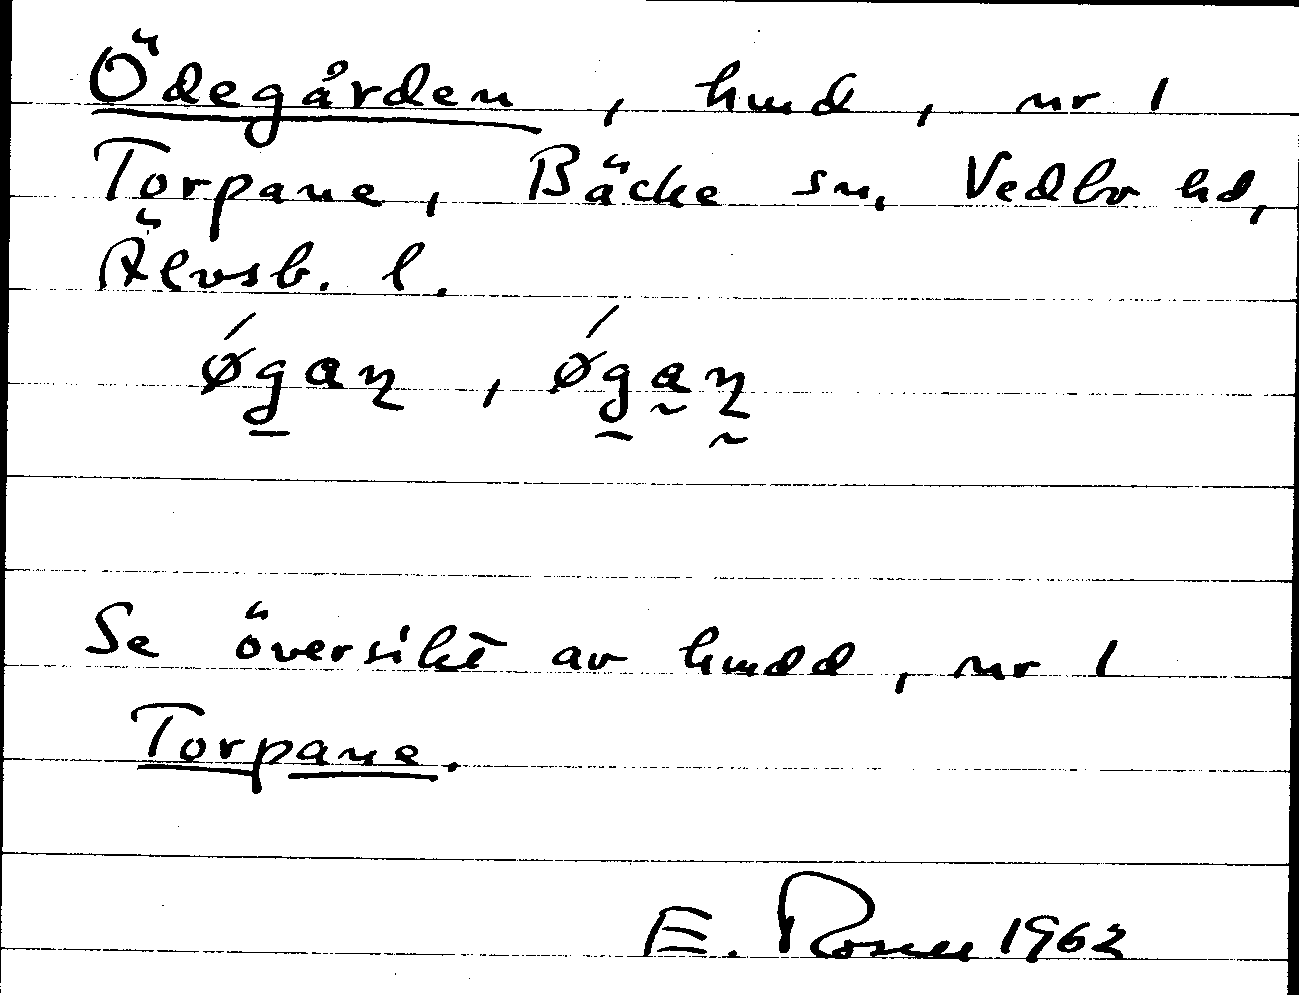 Ödegården, hmd, nr 1
Torpane, Bäcke sn, Vedbo hd,
Älvsb. l.
ǿgaɳ, ǿga̰ɳ̰
Se översikt av hmdd, nr 1
Torpane.
E. Rosell 1962